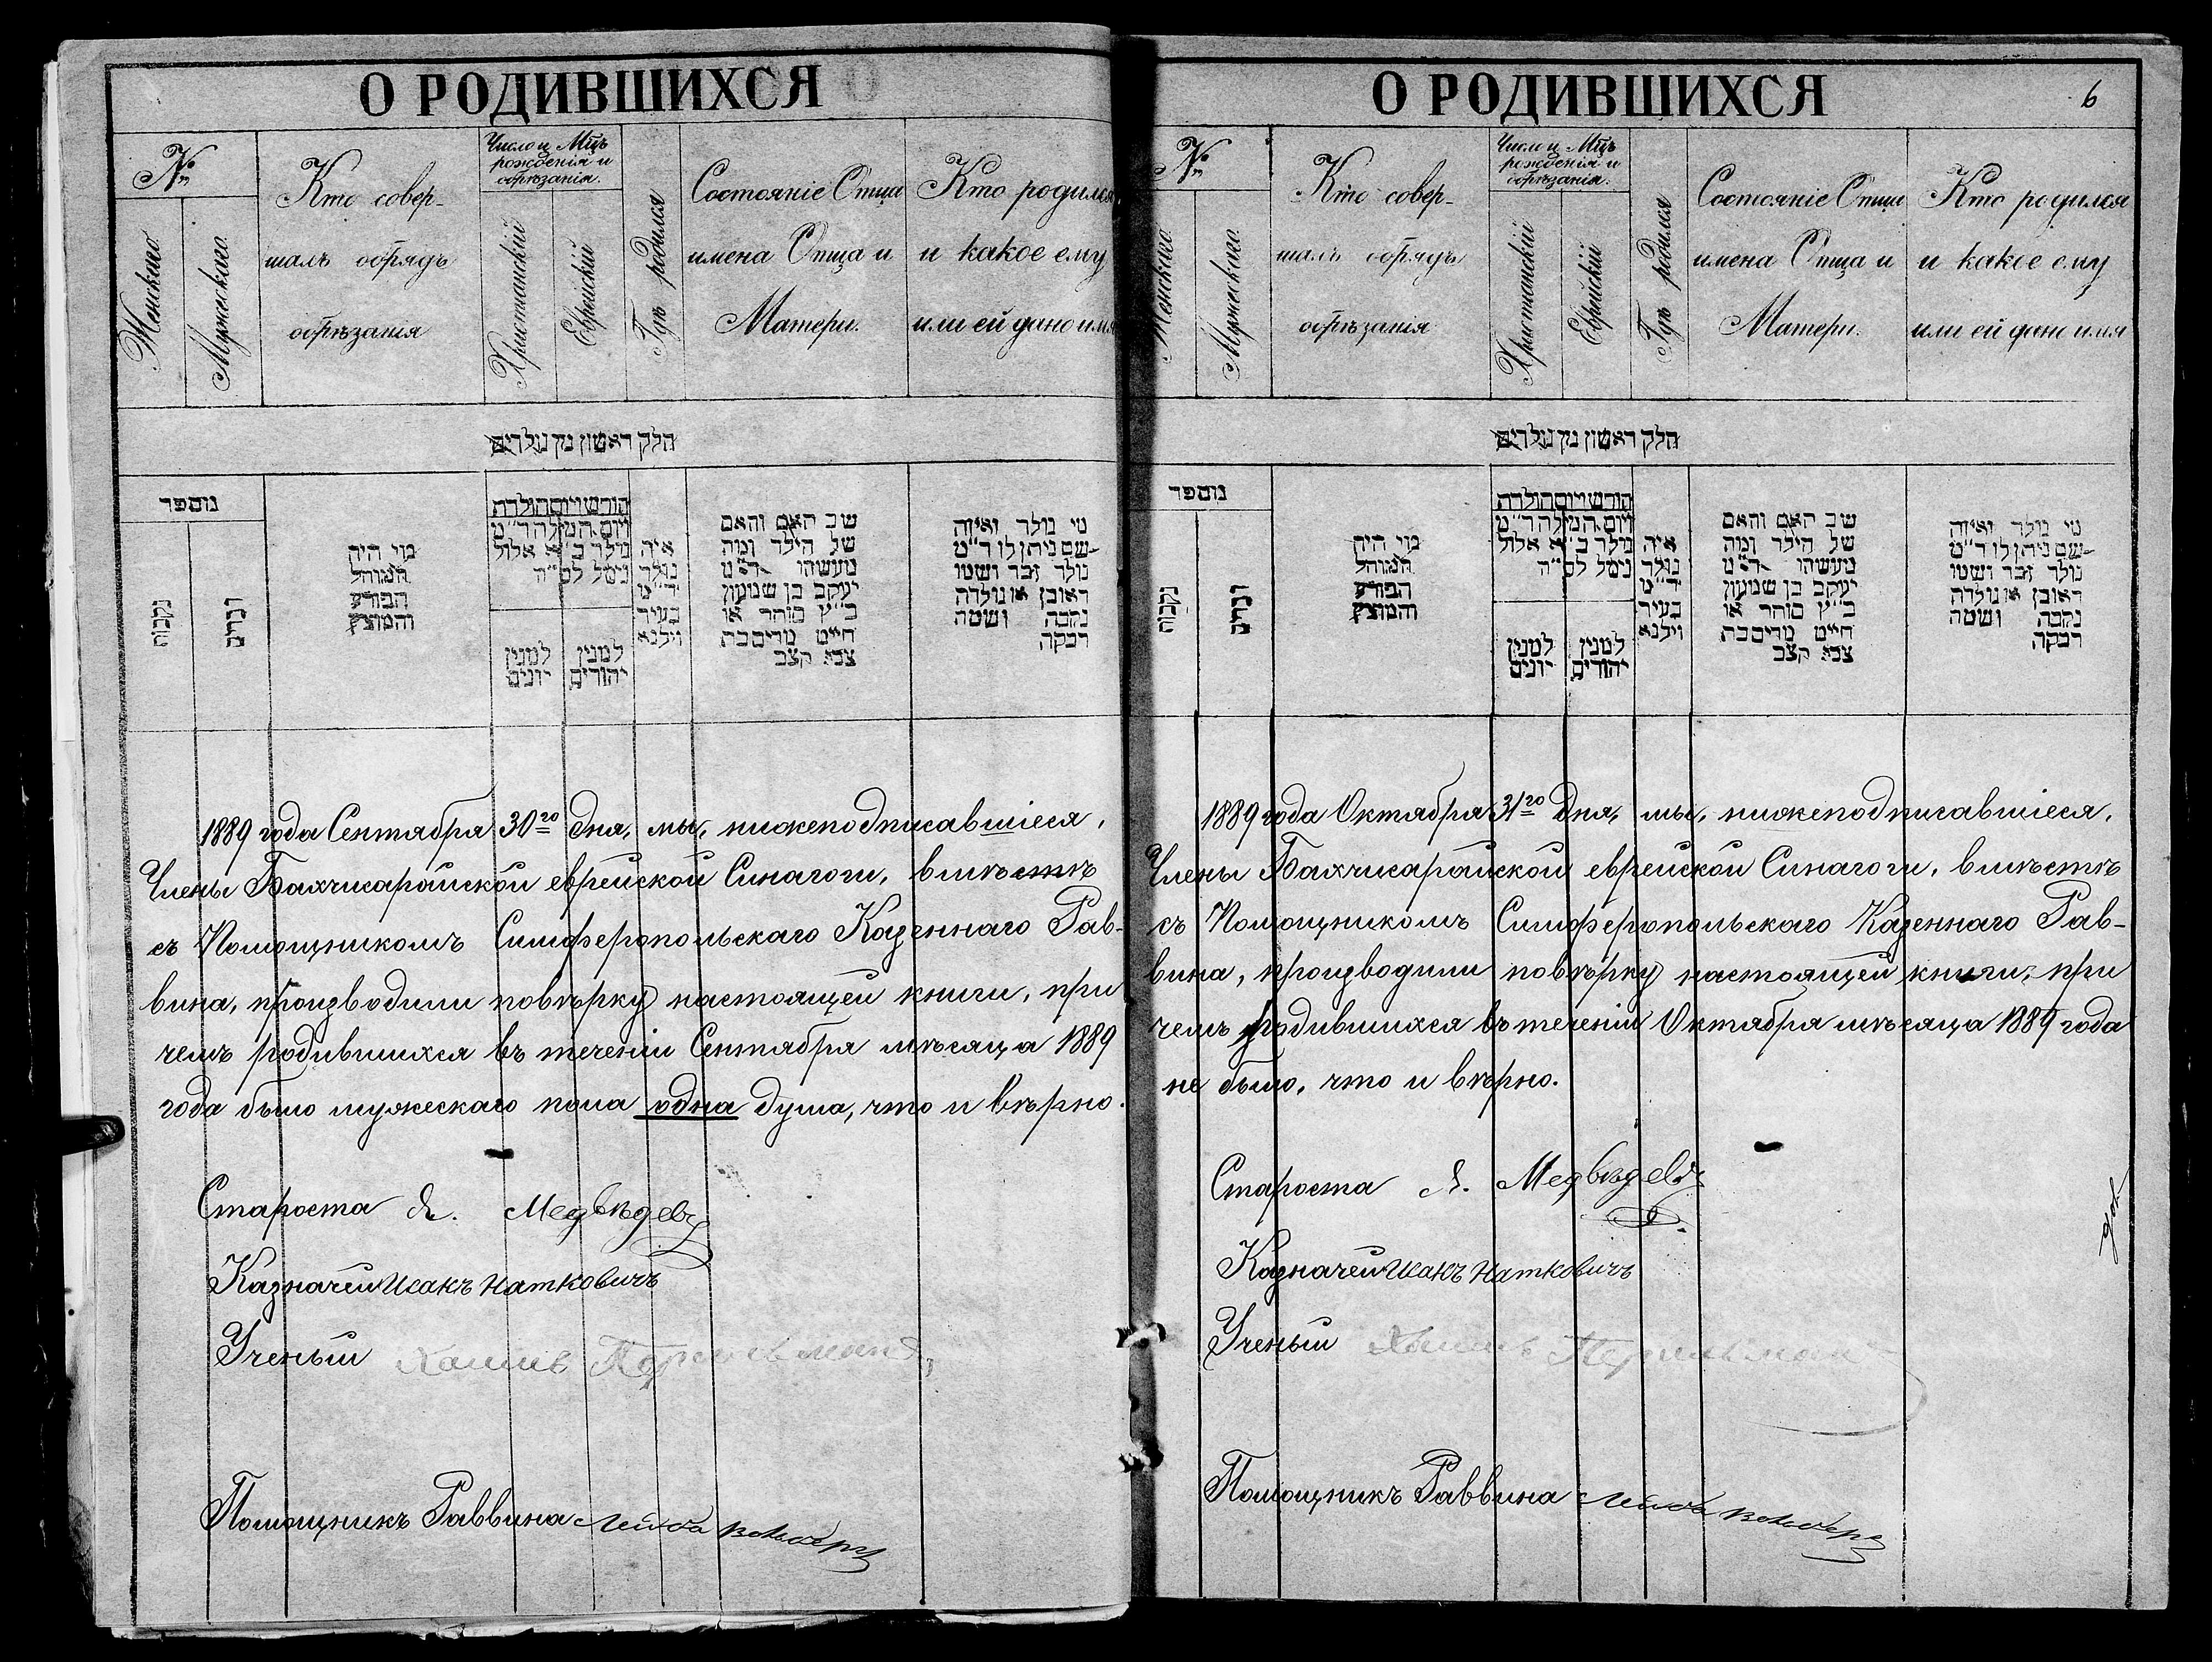 О РОДИВШИХСЯ
№
Женскаго.
Мужескаго.
Кто совер-
шалъ обрядъ
обрѣзанія
Число и Мц҃ъ
рожденія и
обрѣзанія.
Христіанскій
Еврейскій
Гдѣ родился
Состояніе Отца
имена Отца и
Матери.
Кто родился
и какое ему
или ей дано имя
חלק ראשון מן נולדים
נומפר
נקבות
זכרים
מי היה
המוהל
הפורע
והמוצץ
חודש ויום הולדת
ויום המילה ד״מ
נולד כ״א אלול
נימל לס״ה
למנין
יונים
למנין
יהודים
איה
נולד
ד״מ
בעיר
ווילנא
שם האב והאם
של הילד ומה
מעשהו ד״מ
יעקב בן שמעון
כ״ץ סוחר או
חייט מרים בת
צבא קצב
מי נולד ואיזה
שם ניתן לו ד״מ
נולד זכר ושמו
ראובן או נולדה
נקבה ושמה
רבקה
1889 года Сентября 30го дня, мы, нижеподписавшіеся,
Члены Бахчисарайской еврейской Синагоги, вмѣстѣ
съ Помощникомъ Симферопольскаго Казеннаго Рав-
вина, производили повѣрку настоящей книги, при
чемъ родившихся въ теченіи Сентября мѣсяца 1889
года было мужескаго пола одна душа, что и вѣрно.
Староста Я. Медвѣдевъ
Казначей Исакъ Натковичъ
Ученый Хаимъ Перельманъ
Помощникъ Раввина Лейба Вольберъ
О РОДИВШИХСЯ
6
№
Женскаго.
Мужескаго.
Кто совер-
шалъ обрядъ
обрѣзанія
Число и Мц҃ъ
рожденія и
обрѣзанія.
Христіанскій
Еврейскій
Гдѣ родился
Состояніе Отца
имена Отца и
Матери.
Кто родился
и какое ему
или ей дано имя
חלק ראשון מן נולדים
נומפר
נקבות
זכרים
מי היה
המוהל
הפורע
והמוצץ
חודש ויום הולדת
ויום המילה ד״מ
נולד כ״א אלול
נימל לס״ה
למנין
יונים
למנין
יהודים
איה
נולד
ד״מ
בעיר
ווילנא
שם האב והאם
של הילד ומה
מעשהו ד״מ
יעקב בן שמעון
כ״ץ סוחר או
חייט מרים בת
צבא קצב
מי נולד ואיזה
שם ניתן לו ד״מ
נולד זכר ושמו
ראובן או נולדה
נקבה ושמה
רבקה
1889 года Октября 31го дня, мы, нижеподписавшіеся,
Члены Бахчисарайской еврейской Синагоги, вмѣстѣ
съ Помощникомъ Симферопольскаго Казеннаго Рав-
вина, производили повѣрку настоящей книги, при
чемъ родившихся въ теченіи Октября мѣсяца 1889 года
не было, что и вѣрно.
Староста Я. Медвѣдевъ
Казначей Исакъ Натковичъ
Ученый Хаимъ Перельманъ
Помощникъ Раввина Лейба Вольберъ